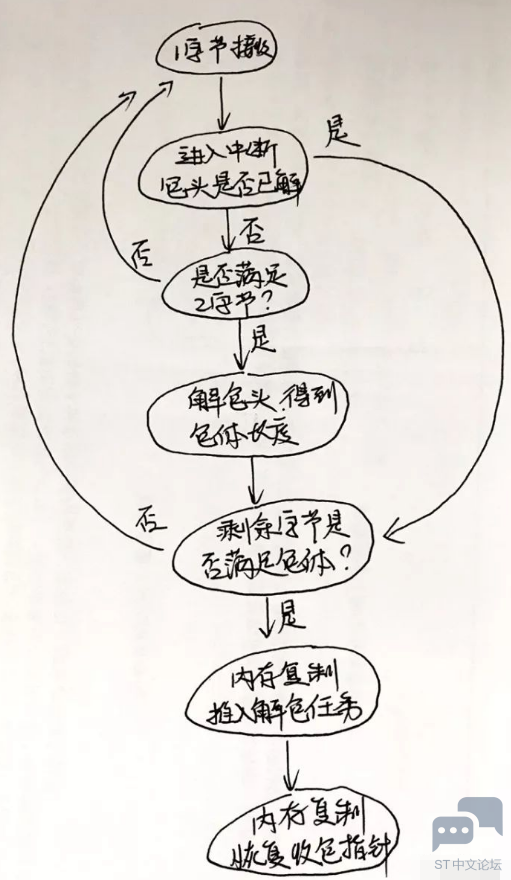 1字节接收
进入中断
是
包头是否已解
否
否
是否满足
2字节?
是
解包头,得到
包体长度
否
剩余字节是
否满足包体?
是
内存复制
推入解包任务
内存复制
恢复收包指针
ST中文论坛